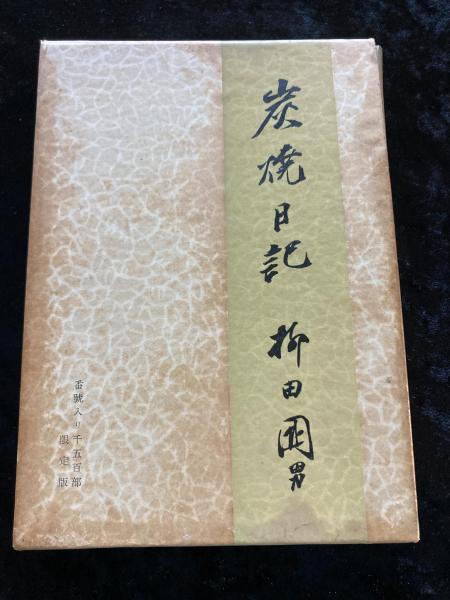 炭焼日記　柳田國男
番號入り千五百部
限定版